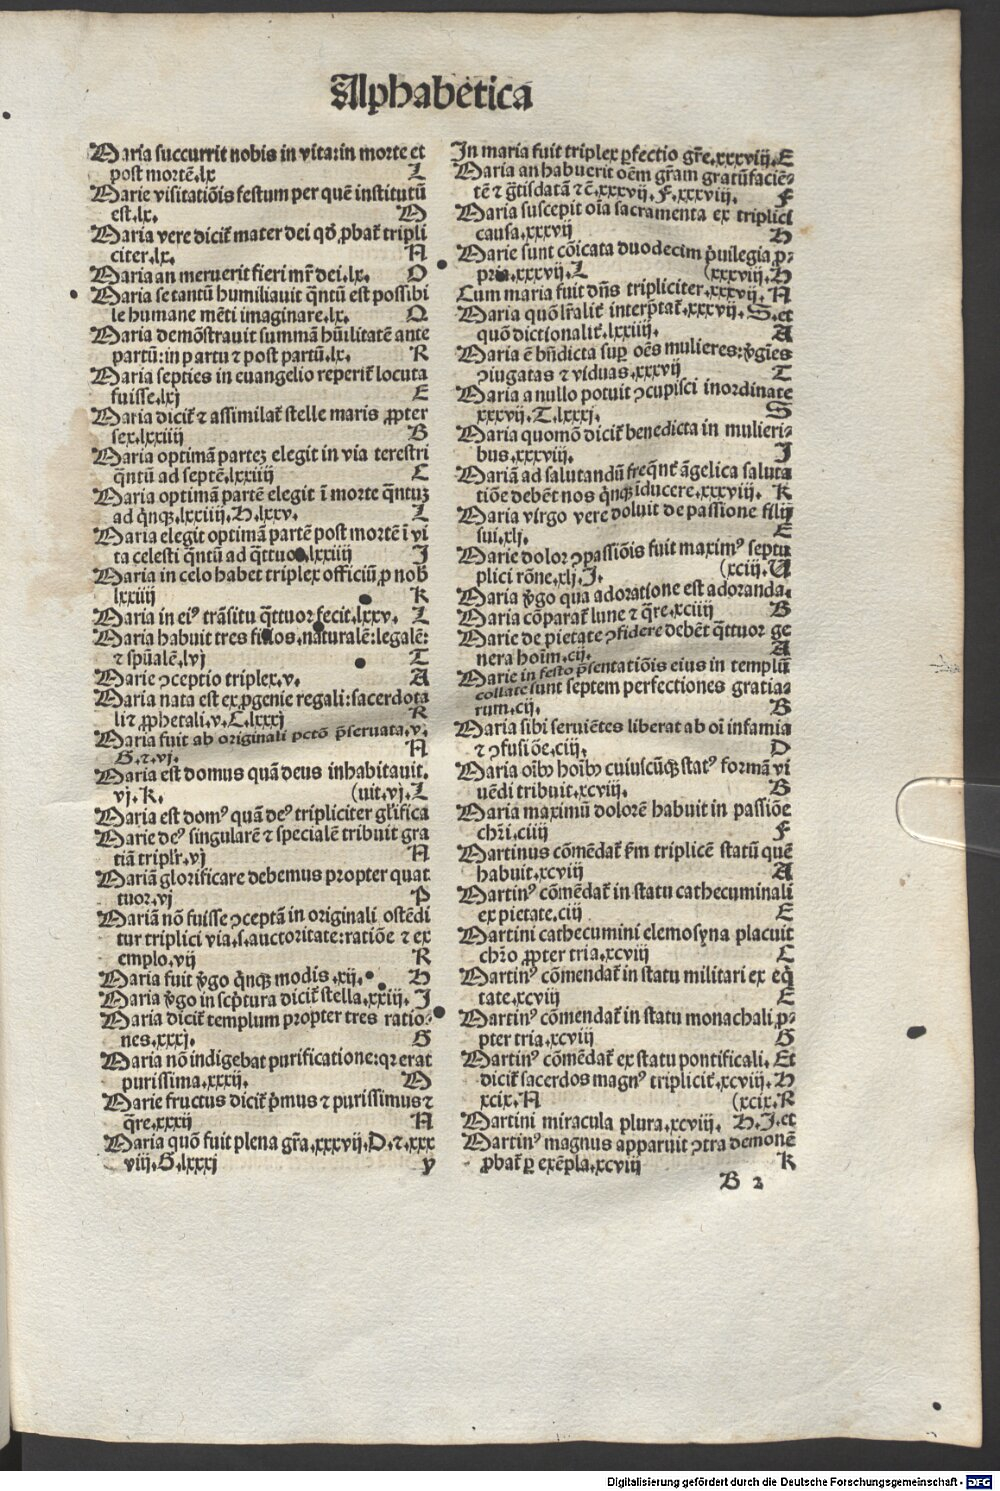 Alphabetica
Maria succurrit nobis in vita:in morte et
post mortē.lx L
Marie visitatiōis festum per quē institutū
est.lx. M
Maria vere dicit̄ mater dei qđ ꝓbat̄ tripli
citer.lx. N
Maria an meruerit fieri mr̄ dei.lx. O
Maria se tantū humiliauit q̄ntū est possibi
le humane mēti imaginare.lx. Q
Maria demōstrauit summā hūilitatē ante
partū:in partu ⁊ post partū.lx. R
Maria septies in euangelio reperit̄ locuta
fuisse.lxj E
Maria dicit̄ ⁊ assimilat̄ stelle maris ꝓpter
sex.lxxiiij B
Maria optimā partēꝫ elegit in via terestri
q̄ntū ad septē.lxxiiij C
Maria optimā partē elegit ī morte q̄ntuꝫ
ad q̄nqꝫ.lxxiiij.H.lxxv. L
Maria elegit optimā partē post mortē ī vi
ta celesti q̄ntū ad q̄ttuor.lxxiiij I
Maria in celo habet triplex officiū ꝓ nob̄
lxxiiij K
Maria in eiꝰ trāsitu q̄ttuor fecit.lxxv. L
Maria habuit tres filios.naturalē:legalē:
⁊ spūalē.lvj T
Marie ꝯceptio triplex.v. A
Maria nata est ex ꝓgenie regali:sacerdota
li⁊ ꝓphetali.v.C.lxxxj R
Maria fuit ab originali pctō p̄seruata.v.
G.⁊.vj. N
Maria est domus quā deus inhabitauit.
vj.K. (uit.vj.L
Maria est domꝰ quā deꝰ tripliciter gl̄ifica
Marie deꝰ singularē ⁊ specialē tribuit gra
tiā triplr̄.vj N
Mariā glorificare debemus propter quat
tuor.vj P
Mariā nō fuisse ꝯceptā in originali ostēdi
tur triplici via.s.auctoritate:ratiōe ⁊ ex
emplo.vij R
Maria fuit v̄go q̄nqꝫ modis.xij. H
Maria v̄go in scp̄tura dicit̄ stella.xxiij. I
Maria dicit̄ templum propter tres ratio-
nes.xxxj. G
Maria nō indigebat purificatione:qꝛ erat
purissima.xxxij. M
Marie fructus dicit̄ p̄mus ⁊ purissimus ⁊
q̄re.xxxij N
Maria quō fuit plena gr̄a.xxxvij.D.⁊.xxx
viij.G.lxxxj y
In maria fuit triplex ꝑfectio gr̄e.xxxviij.E
Maria an habuerit oēm gr̄am gratūfaciē-
tē ⁊ ḡtisdatā ⁊ē.xxxvij.F.xxxviij. F
Maria suscepit oīa sacramenta ex triplici
causa.xxxvij H
Marie sunt cōicata duodecim p̄uilegia ꝓ-
pria.xxxvij.L (xxxviij.H
Cum maria fuit dn̄s tripliciter.xxxvij.N
Maria quō lr̄alit̄ interp̄tat̄.xxxvij.S.et
quō dictionalit̄.lxxiiij. A
Maria ē bn̄dicta suꝑ oēs mulieres:v̄gīes
ꝯiugatas ⁊ viduas.xxxvij T
Maria a nullo potuit ꝯcupisci inordinate
xxxvij.T.lxxxj. S
Maria quomō dicit̄ benedicta in mulieri-
bus.xxxviij. I
Mariā ad salutandū freq̄nt̄ āgelica saluta
tiōe debēt nos q̄nqꝫ īducere.xxxviij. K
Maria virgo vere doluit de passione filij
sui.xlj. E
Marie dolor ꝯpassiōis fuit maximꝰ septu
plici rōne.xlj.I. (xciij.U
Maria v̄go qua adoratione est adoranda.
Maria cōparat̄ lune ⁊ q̄re.xciiij B
Marie de pietate ꝯfidere debēt q̄ttuor ge
nera hoīm.cij. A
Marie in festo p̄sentatiōis eius in templū
collate sunt septem perfectiones gratia-
rum.cij. B
Maria sibi seruiētes liberat ab oī infamia
⁊ ꝯfusiōe.ciij. D
Maria oībꝰ hoībꝰ cuiuscūqꝫ statꝰ formā vi
uēdi tribuit.xcviij. B
Maria maximū dolorē habuit in passiōe
chr̄i.ciiij F
Martinus cōmēdat̄ ẜm triplicē statū quē
habuit.xcviij A
Martinꝰ cōmēdat̄ in statu cathecuminali
ex pietate.ciij E
Martini cathecumini elemosyna placuit
chr̄o ꝓpter tria.xcviij C
Martinꝰ cōmendat̄ in statu militari ex eq̄
tate.xcviij E
Martinꝰ cōmendat̄ in statu monachali ꝓ-
pter tria.xcviij G
Martinꝰ cōmēdat̄ ex statu pontificali. Et
dicit̄ sacerdos magnꝰ triplicit̄.xcviij.H
xcix.N (xcix.R
Martini miracula plura.xcviij. H.I.et
Martinꝰ magnus apparuit ꝯtra demonē
ꝓbat̄ ꝑ exēpla.xcviij K
B 2
Digitalisierung gefördert durch die Deutsche Forschungsgemeinschaft - DFG